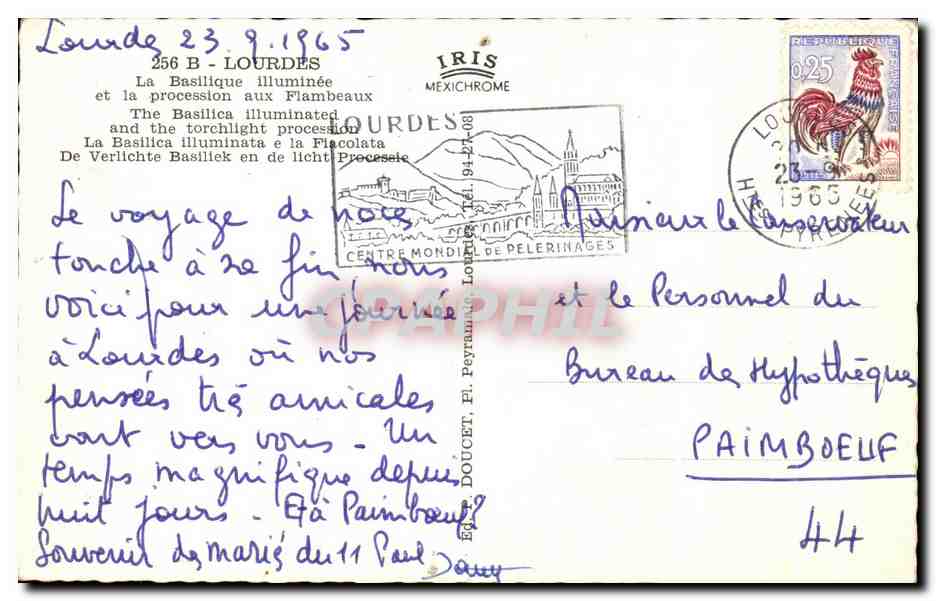 Lourdes 23.9.1965
256 B - LOURDES
La Basilique illuminée
et la procession aux Flambeaux
The Basilica illuminated
and the torchlight procession
La Basilica illuminata e la Fiacolata
De Verlichte Basiliek en de licht Processie
IRIS
MEXICHROME
LOURDES
CENTRE MONDIAL DE PELERINAGES
REPUBLIQUE FRANÇAISE
0,25
23-9
1965
Ed. P. DOUCET, Pl. Peyramale, Lourdes, Tél. 94-27-08
Le voyage de noces
touche à sa fin nous
voici pour une journée
à Lourdes où nos
pensées très amicales
vont vers vous - Un
temps magnifique depuis
huit jours - Et à Paimboeuf?
Souvenir des mariés du 11 Paul
Dany
Monsieur le Conservateur
et le Personnel du
Bureau des Hypothèques
PAIMBOEUF
44
CPAPHIL